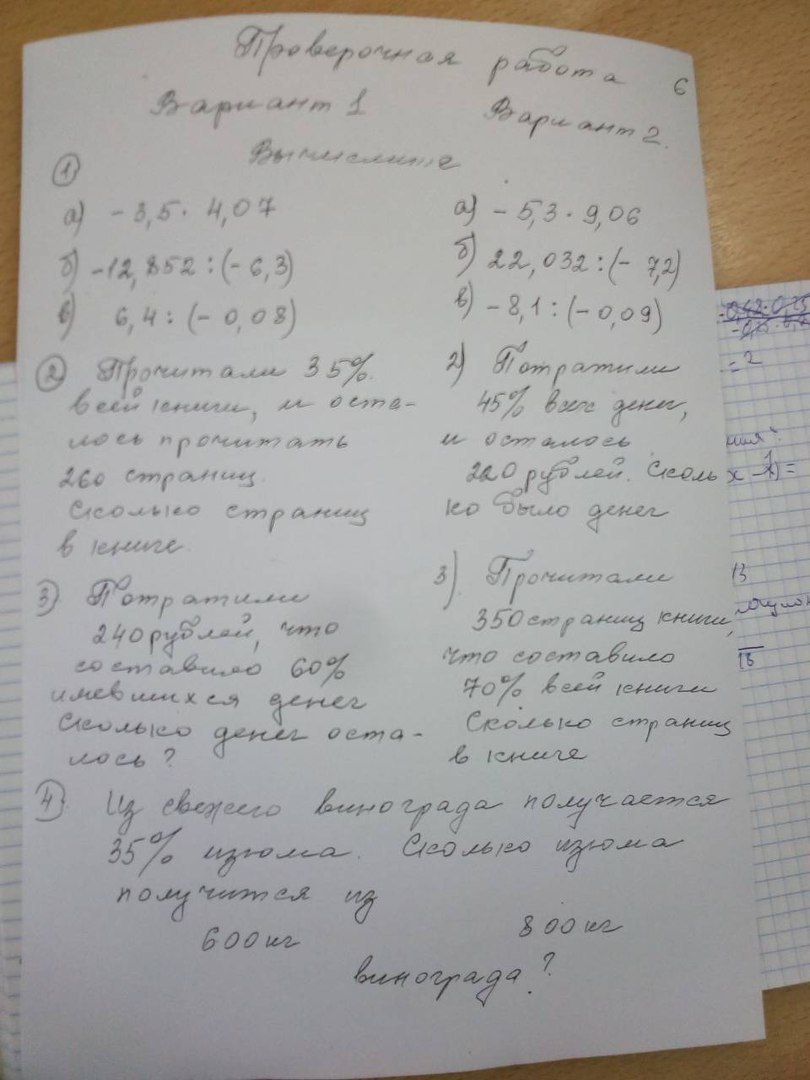 Проверочная работа 6
Вариант 1
Вариант 2.
Вычислите
①
а) -3,5 · 4,07
б) -12,852 : (-6,3)
в) 6,4 : (-0,08)
② Прочитали 35%
всей книги, и оста-
лось прочитать
260 страниц.
Сколько страниц
в книге.
3) Потратили
240 рублей, что
составило 60%
имевшихся денег
Сколько денег оста-
лось?
а) -5,3 · 9,06
б) 22,032 : (-7,2)
в) -8,1 : (-0,09)
2) Потратили
45% всех денег,
и осталось
220 рублей. Сколь
ко было денег
3) Прочитали
350 страниц книги,
что составило
70% всей книги
Сколько страниц
в книге
④ Из свежего винограда получается
35% изюма. Сколько изюма
получится из
600 кг
800 кг
винограда?
= 2
13